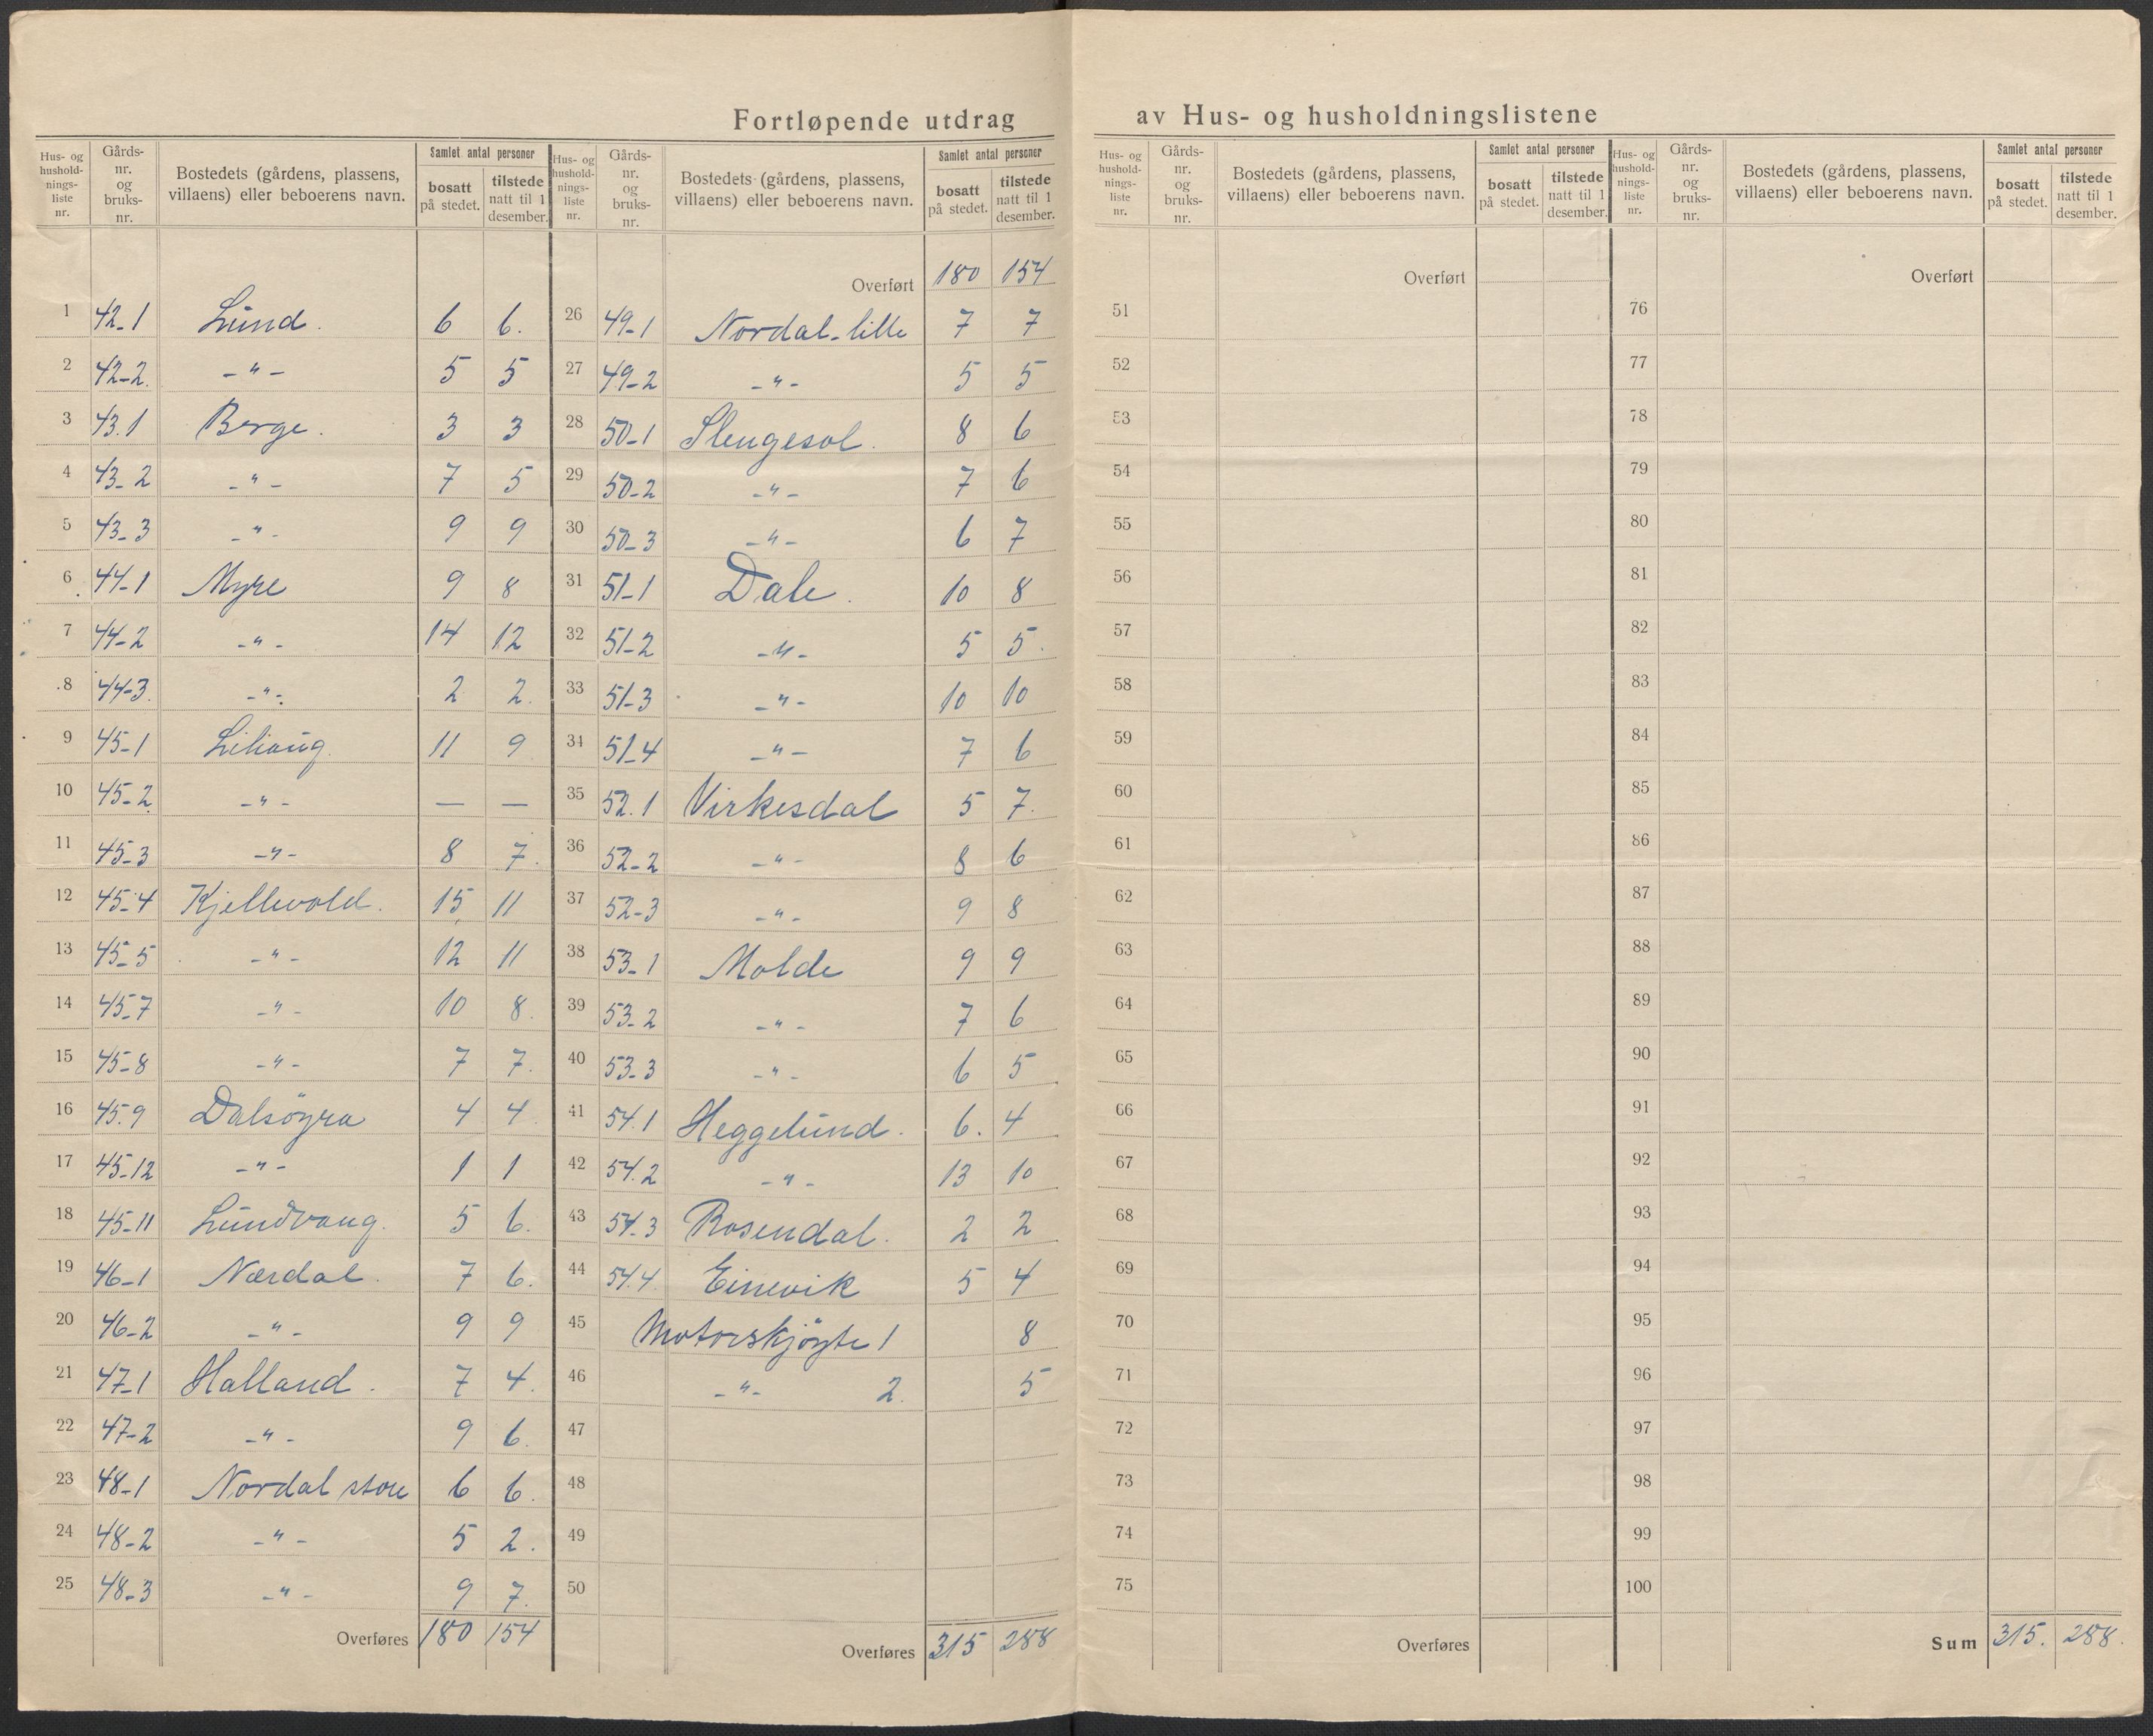 Fortløpende utdrag av Hus- og husholdningslistene
Hus- og hushold-nings-liste nr. Gårds-nr. og bruks-nr. Bostedets (gårdens, plassens, villaens) eller beboerens navn. Samlet antal personer bosatt på stedet. tilstede natt til 1 desember.
1 42-1 Lund. 6 6.
2 42-2. -"- 5 5
3 43.1 Berge. 3 3
4 43-2 -"- 7 5
5 43-3 -"- 9 9
6 44-1 Myre 9 8
7 44-2 -"- 14 12
8 44-3. -"- 2 2.
9 45-1 Liliaug. 11 9
10 45-2 -"- — —
11 45-3 -"- 8 7.
12 45-4 Kjellevold. 15 11
13 45-5 -"- 12 11
14 45-7 -"- 10 8.
15 45-8 -"- 7 7.
16 45.9 Dalsöyra 4 4
17 45-12 -"- 1 1
18 45-11 Lundvang. 5 6.
19 46-1 Nærdal. 7 6.
20 46-2 -"- 9 9
21 47-1 Halland. 7 4.
22 47-2 -"- 9 6.
23 48-1 Nordal store 6 6.
24 48-2 -"- 5 2.
25 48-3 -"- 9 7.
Overføres 180 154
Hus- og hushold-nings-liste nr. Gårds-nr. og bruks-nr. Bostedets (gårdens, plassens, villaens) eller beboerens navn. Samlet antal personer bosatt på stedet. tilstede natt til 1 desember.
Overført 180 154
26 49-1 Nordal-lille 7 7
27 49-2 -"- 5 5
28 50-1 Slengesol. 8 6
29 50-2 -"- 7 6
30 50-3 -"- 6 7
31 51-1 Dale. 10 8
32 51-2 -"- 5 5.
33 51-3 -"- 10 10
34 51-4 -"- 7 6
35 52.1 Virkesdal 5 7.
36 52-2 -"- 8 6
37 52-3 -"- 9 8
38 53-1 Molde 9 9
39 53-2 -"- 7 6
40 53-3 -"- 6 5
41 54.1 Heggelund. 6. 4
42 54.2 -"- 13 10
43 54-3 Rosendal. 2 2
44 54.4 Einevik 5 4
45 Motorskjöyte 1 8
46 -"- 2. 5
47
48
49
50
Overføres 315 288
Hus- og hushold-nings-liste nr. Gårds-nr. og bruks-nr. Bostedets (gårdens, plassens, villaens) eller beboerens navn. Samlet antal personer bosatt på stedet. tilstede natt til 1 desember.
Overført
51
52
53
54
55
56
57
58
59
60
61
62
63
64
65
66
67
68
69
70
71
72
73
74
75
Overføres
Hus- og hushold-nings-liste nr. Gårds-nr. og bruks-nr. Bostedets (gårdens, plassens, villaens) eller beboerens navn. Samlet antal personer bosatt på stedet. tilstede natt til 1 desember.
Overført
76
77
78
79
80
81
82
83
84
85
86
87
88
89
90
91
92
93
94
95
96
97
98
99
100
Sum 315. 288.